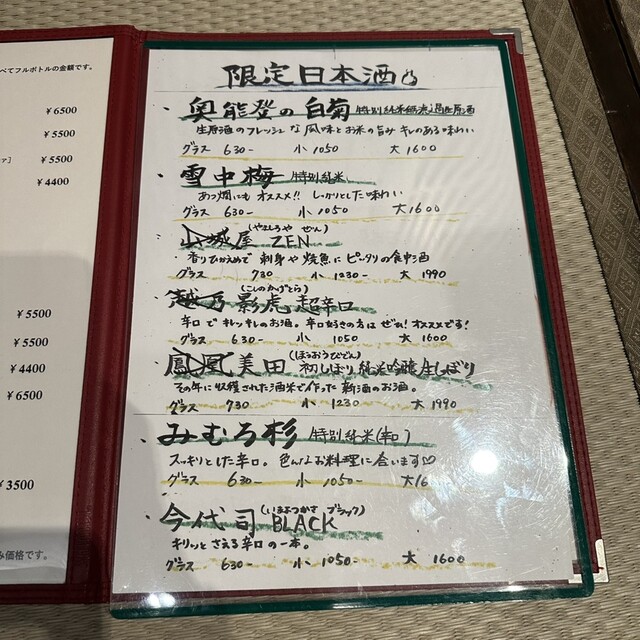 べてフルボトルの金額です。
¥6500
¥5500
¥5500
¥4400
¥5500
¥5500
¥4400
¥6500
¥3500
み価格です。
限定日本酒
・奥能登の白菊 特別純米 原酒
生原酒のフレッシュな風味とお米の旨み キレのある味わい
グラス 630- 小 1050 大 1600
・雪中梅 特別純米
あつ燗にもオススメ!! しっかりとした味わい
グラス 630- 小 1050 大 1600
(やましろや ぜん)
・山城屋 ZEN
香りひかえめで 刺身や焼魚に ピッタリの食中酒
グラス 730 小 1230- 大 1990
(こしのかげとら)
・越乃影虎 超辛口
辛口でキレッキレのお酒。辛口好きの方はぜひ!オススメです!
グラス 630- 小 1050 大 1600
(ほうおうびでん)
・鳳凰美田 初しぼり 純米吟醸 生しぼり
その年に収穫された酒米で作った 新酒のお酒。
グラス 730 小 1230 大 1990
・みむろ杉 特別純米(辛口)
スッキリとした辛口。色んなお料理に合います♡
グラス 630- 小 1050- 大16
(いまよつかさ ブラック)
・今代司 BLACK
キリッと さえる辛口の一本。
グラス 630- 小 1050- 大 1600